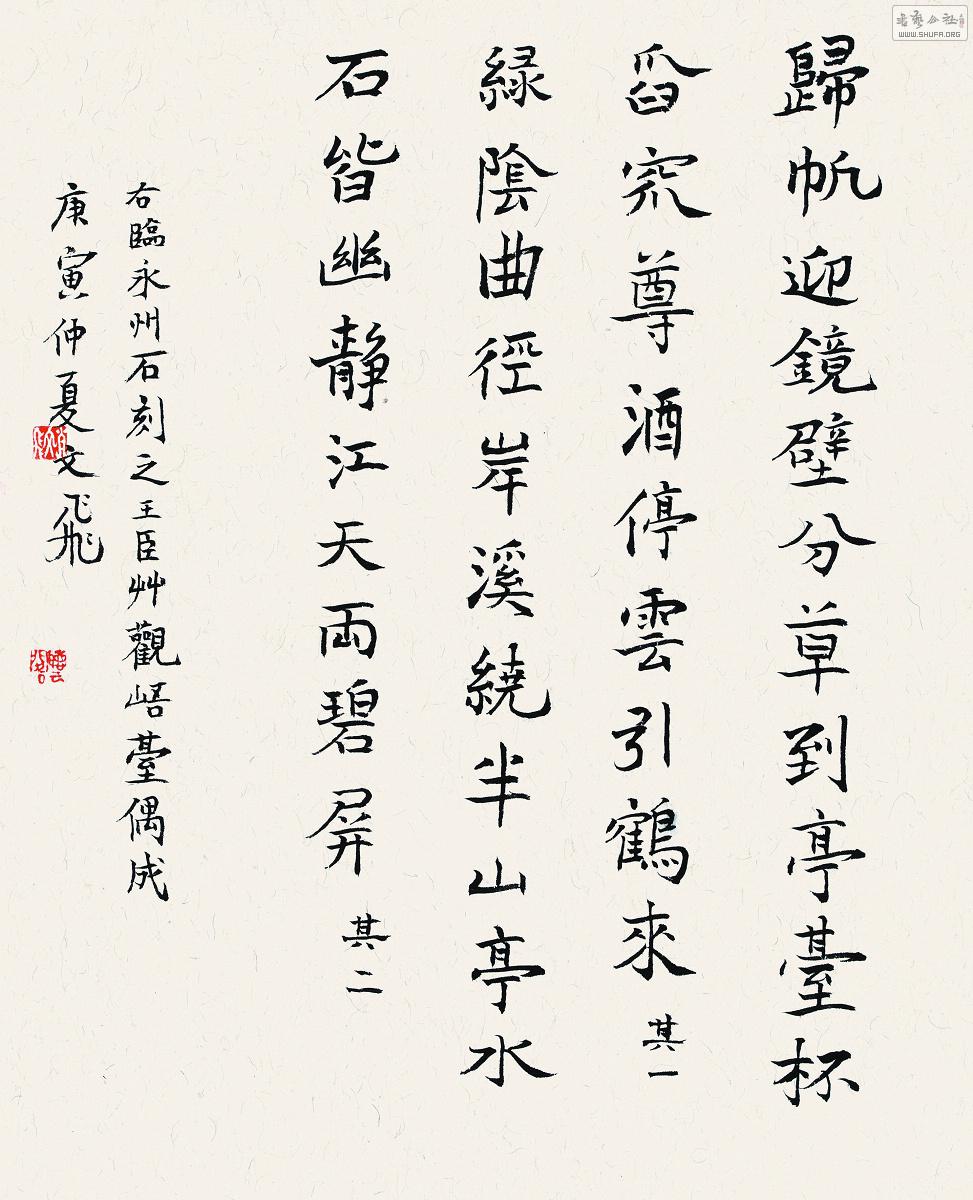 歸帆迎鏡壁分草到亭臺杯
舀窊尊酒停雲引鶴來 其一
緑陰曲徑岸溪繞半山亭水
石皆幽靜江天両碧屏 其二
右臨永州石刻之王臣艸觀峿臺偶成
庚寅仲夏文飛
書藝公社
WWW.SHUFA.ORG